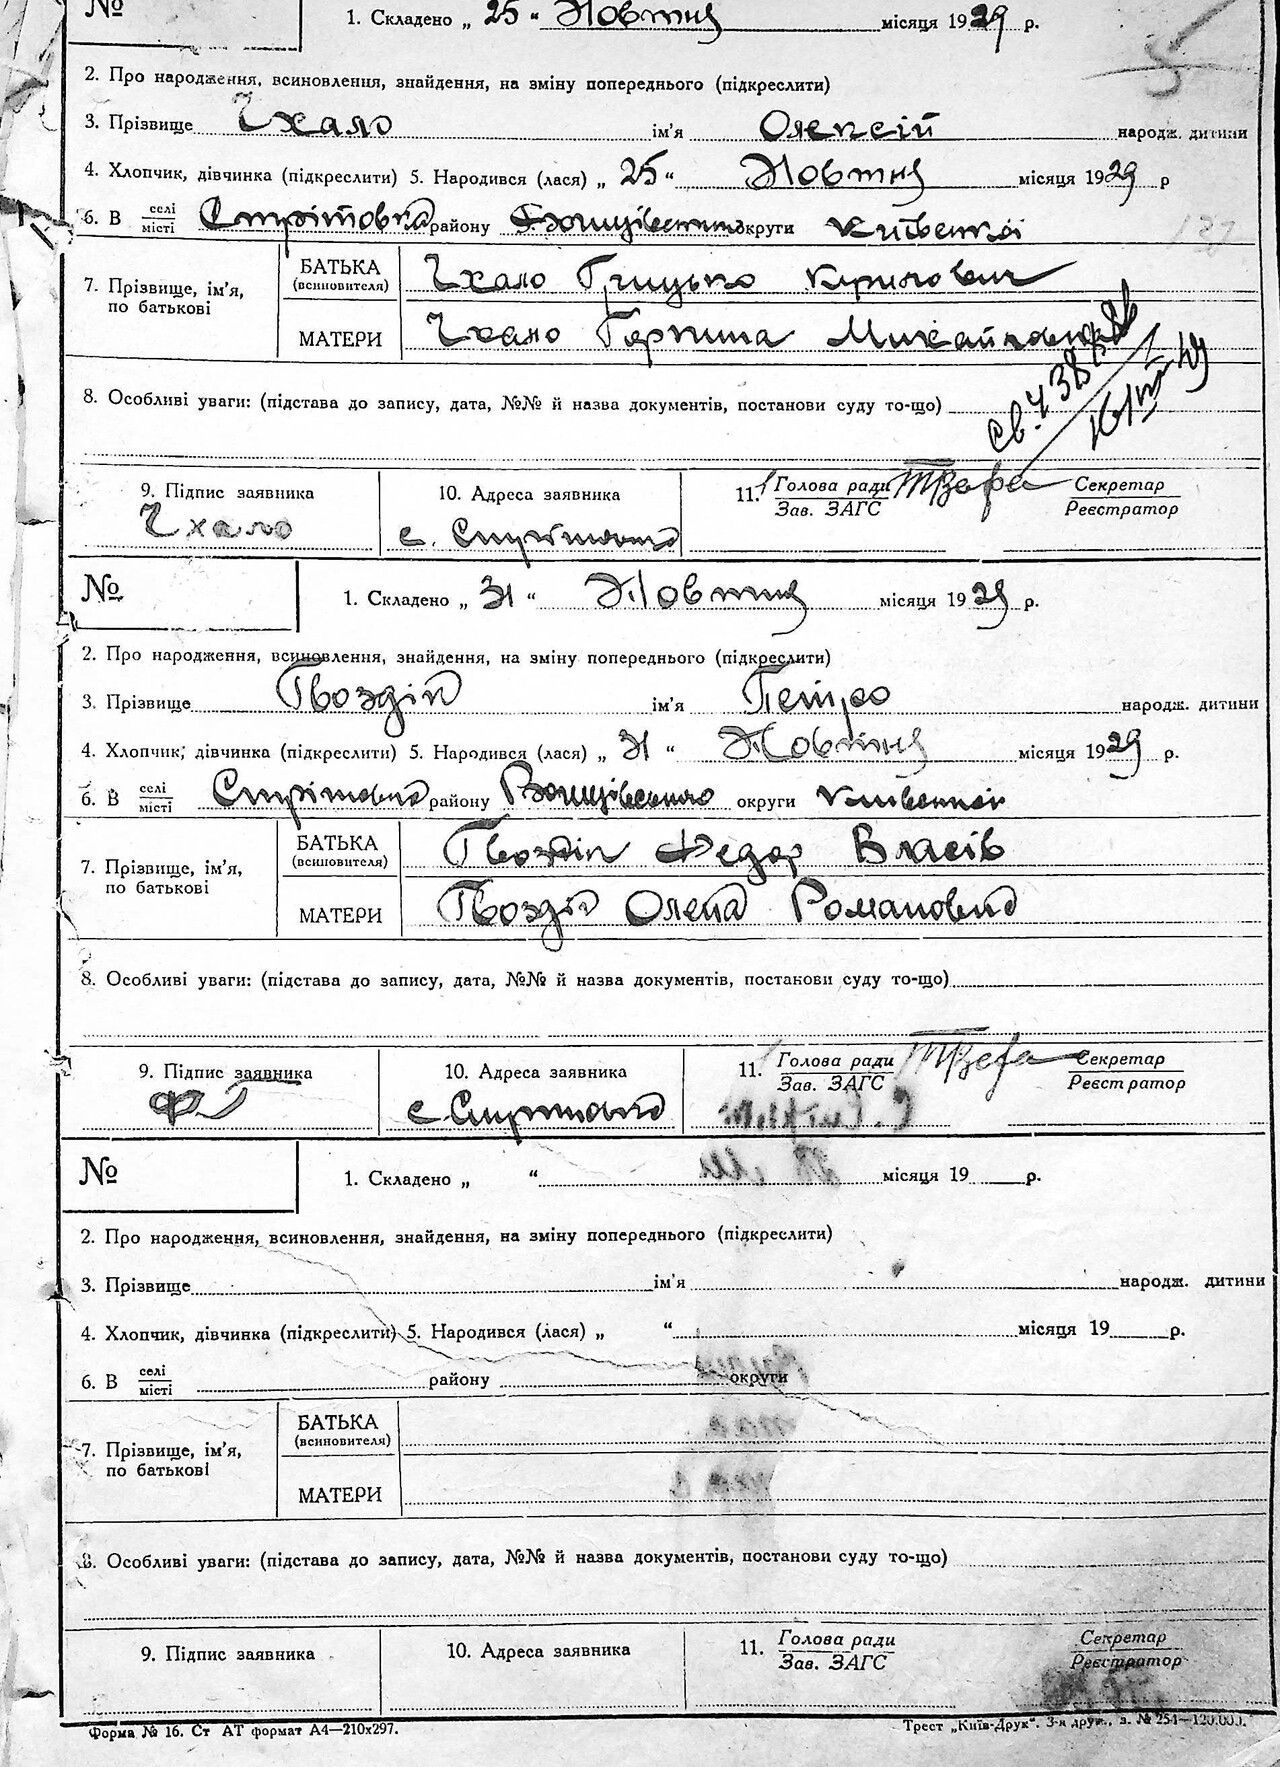 № 1. Складено „ 25 “ Жовтня місяця 1929 р.
2. Про народження, всиновлення, знайдення, на зміну попереднього (підкреслити)
3. Прізвище Чхало ім'я Олексій народж. дитини
4. Хлопчик, дівчинка (підкреслити) 5. Народився (лася) „ 25 “ Жовтня місяця 1929 р
6. В селі місті Стрітовка району округи Київської
7. Прізвище, ім'я, по батькові
БАТЬКА (всиновителя) Чхало Грицько
МАТЕРИ Чхало Горпина Михайловна
8. Особливі уваги: (підстава до запису, дата, №№ й назва документів, постанови суду то-що)
9. Підпис заявника 10. Адреса заявника 11. Голова ради Зав. ЗАГС Секретар Реєстратор
Чхало с. Стрітовка
№ 1. Складено „ 31 “ Жовтня місяця 1929 р.
2. Про народження, всиновлення, знайдення, на зміну попереднього (підкреслити)
3. Прізвище Гвоздій ім'я Петро народж. дитини
4. Хлопчик, дівчинка (підкреслити) 5. Народився (лася) „ 31 “ Жовтня місяця 1929 р.
6. В селі місті Стрітовка району округи Київської
7. Прізвище, ім'я, по батькові
БАТЬКА (всиновителя) Гвоздій Федор Власів
МАТЕРИ Гвоздій Олена Романовна
8. Особливі уваги: (підстава до запису, дата, №№ й назва документів, постанови суду то-що)
9. Підпис заявника 10. Адреса заявника 11. Голова ради Зав. ЗАГС Секретар Реєстратор
с Стрітовка
№ 1. Складено „ “ місяця 19 р.
2. Про народження, всиновлення, знайдення, на зміну попереднього (підкреслити)
3. Прізвище ім'я народж. дитини
4. Хлопчик, дівчинка (підкреслити) 5. Народився (лася) „ “ місяця 19 р.
6. В селі місті району округи
7. Прізвище, ім'я, по батькові
БАТЬКА (всиновителя)
МАТЕРИ
8. Особливі уваги: (підстава до запису, дата, №№ й назва документів, постанови суду то-що)
9. Підпис заявника 10. Адреса заявника 11. Голова ради Зав. ЗАГС Секретар Реєстратор
Форма № 16. Ст АТ формат А4—210x297. Трест „Київ-Друк“. 3-я друк., з. № 254—120.000.